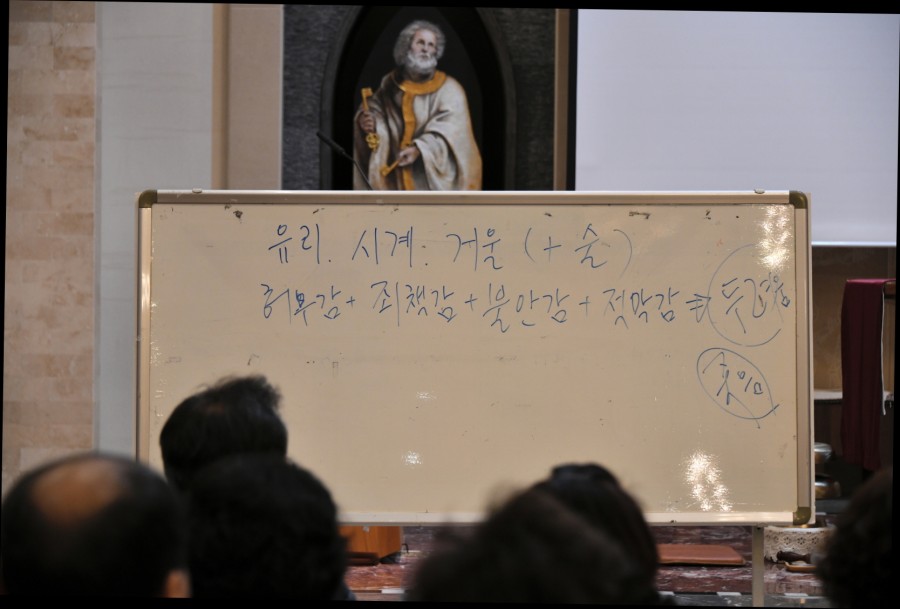 유리. 시계. 거울 (+ 술)
허무감 + 죄책감 + 불안감 + 적막감 ⇒ 두려움
흥미